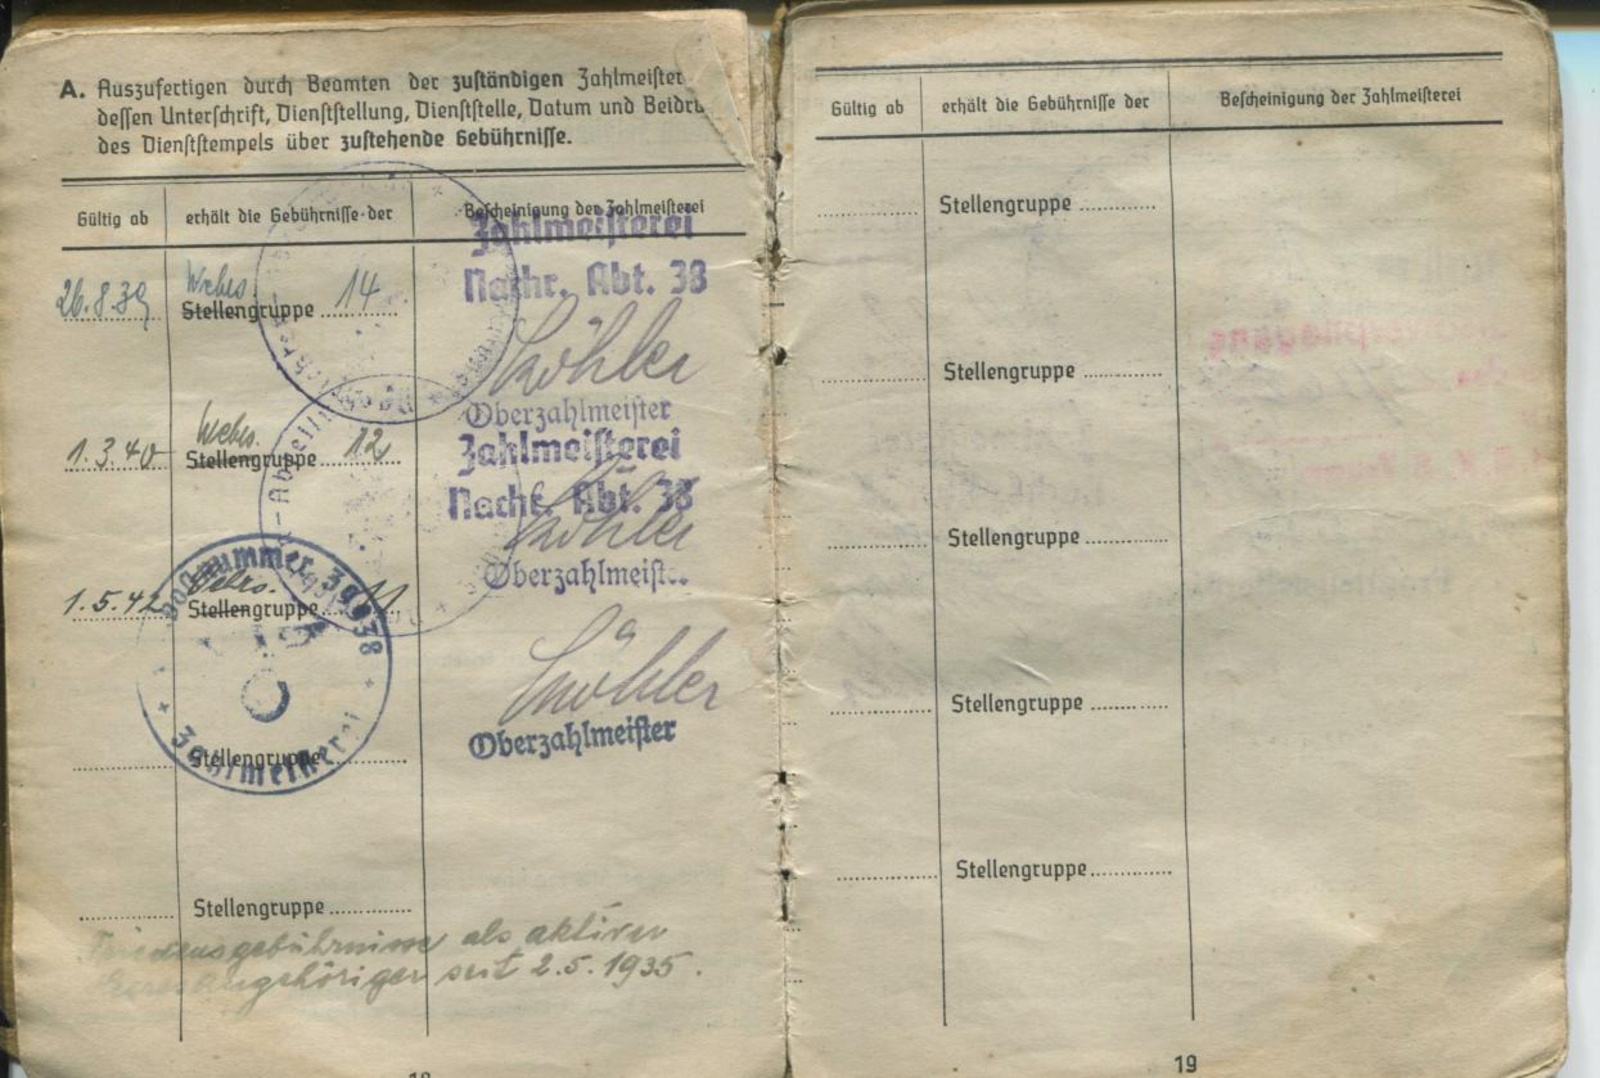 A. Auszufertigen durch Beamten der zuständigen Zahlmeister
dessen Unterschrift, Dienststellung, Dienststelle, Datum und Beidru
des Dienststempels über zustehende Gebührnisse.
Gültig ab erhält die Gebührnisse der Bescheinigung der Zahlmeisterei
Zahlmeisterei
Nachr. Abt. 38
26.8.39 Stellengruppe 14
Köhler
Oberzahlmeister
Zahlmeisterei
1.3.40 Stellengruppe 12
Nachr. Abt. 38
Köhler
Oberzahlmeister
1.5.42 Stellengruppe 11
39938
Köhler
Oberzahlmeister
Stellengruppe
Zahlmeisterei
Stellengruppe
Friedensgebührnisse als aktiver
Heeresangehöriger seit 2.5.1935.
18
Gültig ab erhält die Gebührnisse der Bescheinigung der Zahlmeisterei
Stellengruppe
Stellengruppe
Stellengruppe
Stellengruppe
Stellengruppe
19